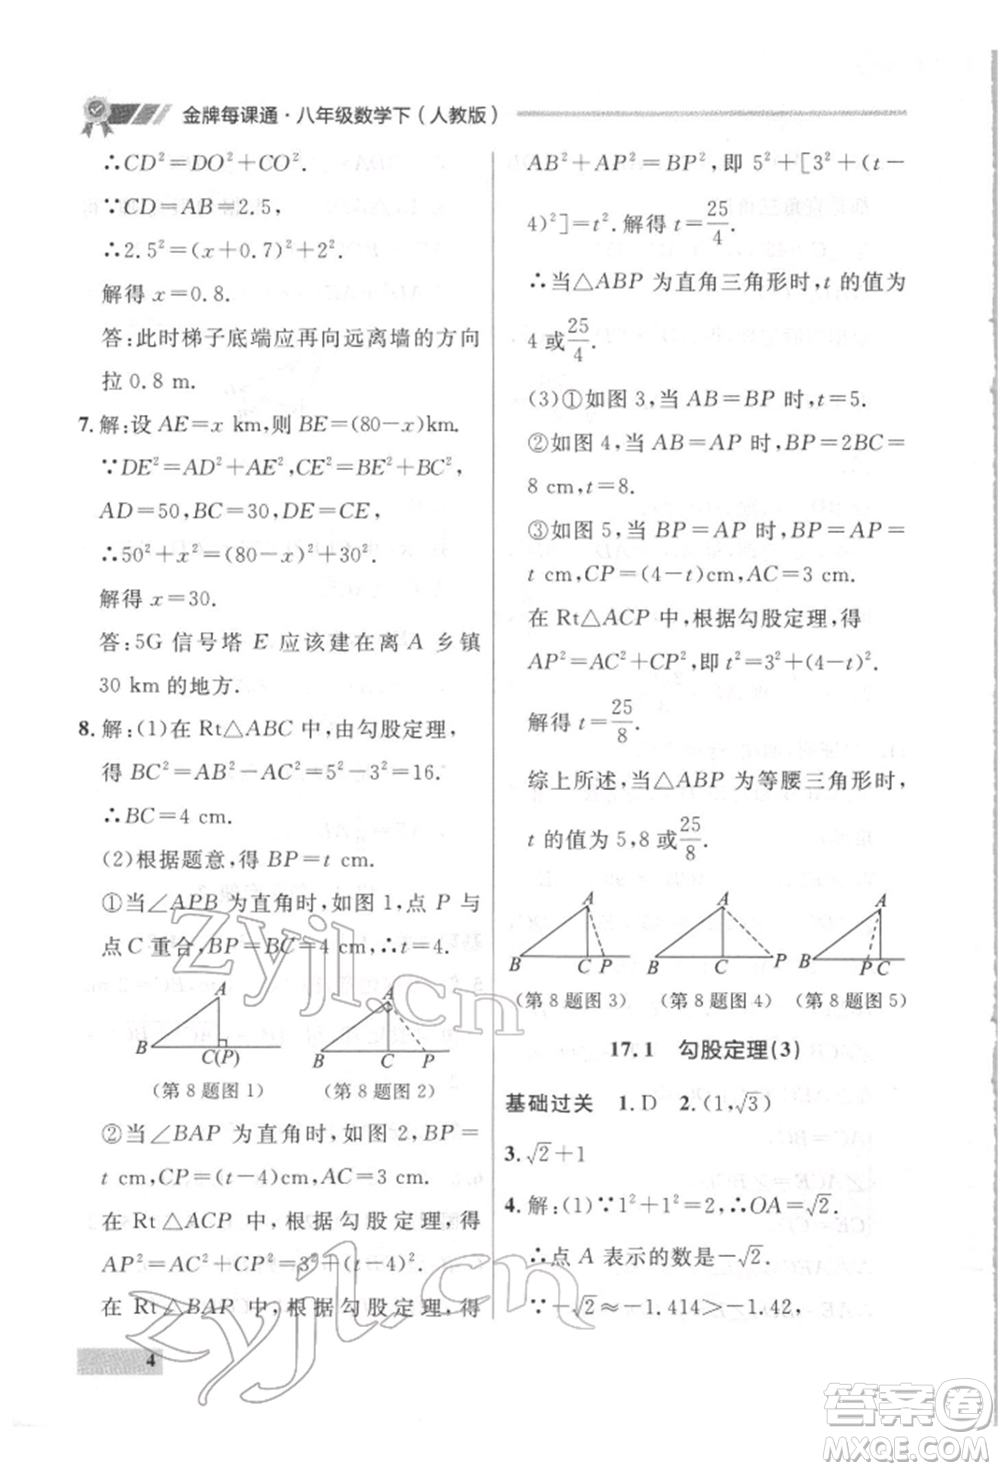 金牌每课通·八年级数学下(人教版)
∴CD²=DO²+CO².
∵CD=AB=2.5,
∴2.5²=(x+0.7)²+2².
解得 x=0.8.
答:此时梯子底端应再向远离墙的方向
拉 0.8 m.
7. 解:设 AE=x km,则 BE=(80-x)km.
∵DE²=AD²+AE²,CE²=BE²+BC²,
AD=50,BC=30,DE=CE,
∴50²+x²=(80-x)²+30².
解得 x=30.
答:5G 信号塔 E 应该建在离 A 乡镇
30 km的地方.
8. 解:(1)在 Rt△ABC 中,由勾股定理,
得 BC²=AB²-AC²=5²-3²=16.
∴BC=4 cm.
(2)根据题意,得 BP=t cm.
①当∠APB 为直角时,如图 1,点 P 与
点 C 重合,BP=BC=4 cm,∴t=4.
A
B
C(P)
(第 8 题图 1)
A
B
C
P
(第 8 题图 2)
②当∠BAP 为直角时,如图 2,BP=
t cm,CP=(t-4)cm,AC=3 cm.
在 Rt△ACP 中,根据勾股定理,得
AP²=AC²+CP²=3²+(t-4)².
在 Rt△BAP 中,根据勾股定理,得
4
AB²+AP²=BP²,即 5²+[3²+(t-
4)²]=t². 解得 t=25/4.
∴当△ABP 为直角三角形时,t 的值为
4 或25/4.
(3)①如图 3,当 AB=BP 时,t=5.
②如图 4,当 AB=AP 时,BP=2BC=
8 cm,t=8.
③如图 5,当 BP=AP 时,BP=AP=
t cm,CP=(4-t)cm,AC=3 cm.
在 Rt△ACP 中,根据勾股定理,得
AP²=AC²+CP²,即 t²=3²+(4-t)².
解得 t=25/8.
综上所述,当△ABP 为等腰三角形时,
t 的值为 5,8 或25/8.
A
B
C
P
(第 8 题图 3)
A
B
C
P
(第 8 题图 4)
A
B
P
C
(第 8 题图 5)
17.1 勾股定理(3)
基础过关 1. D 2. (1,√3)
3. √2+1
4. 解:(1)∵1²+1²=2,∴OA=√2.
∴点 A 表示的数是-√2.
∵-√2≈-1.414>-1.42,
zyjl.cn
zyjl.cn
答案圈
MXQE.COM